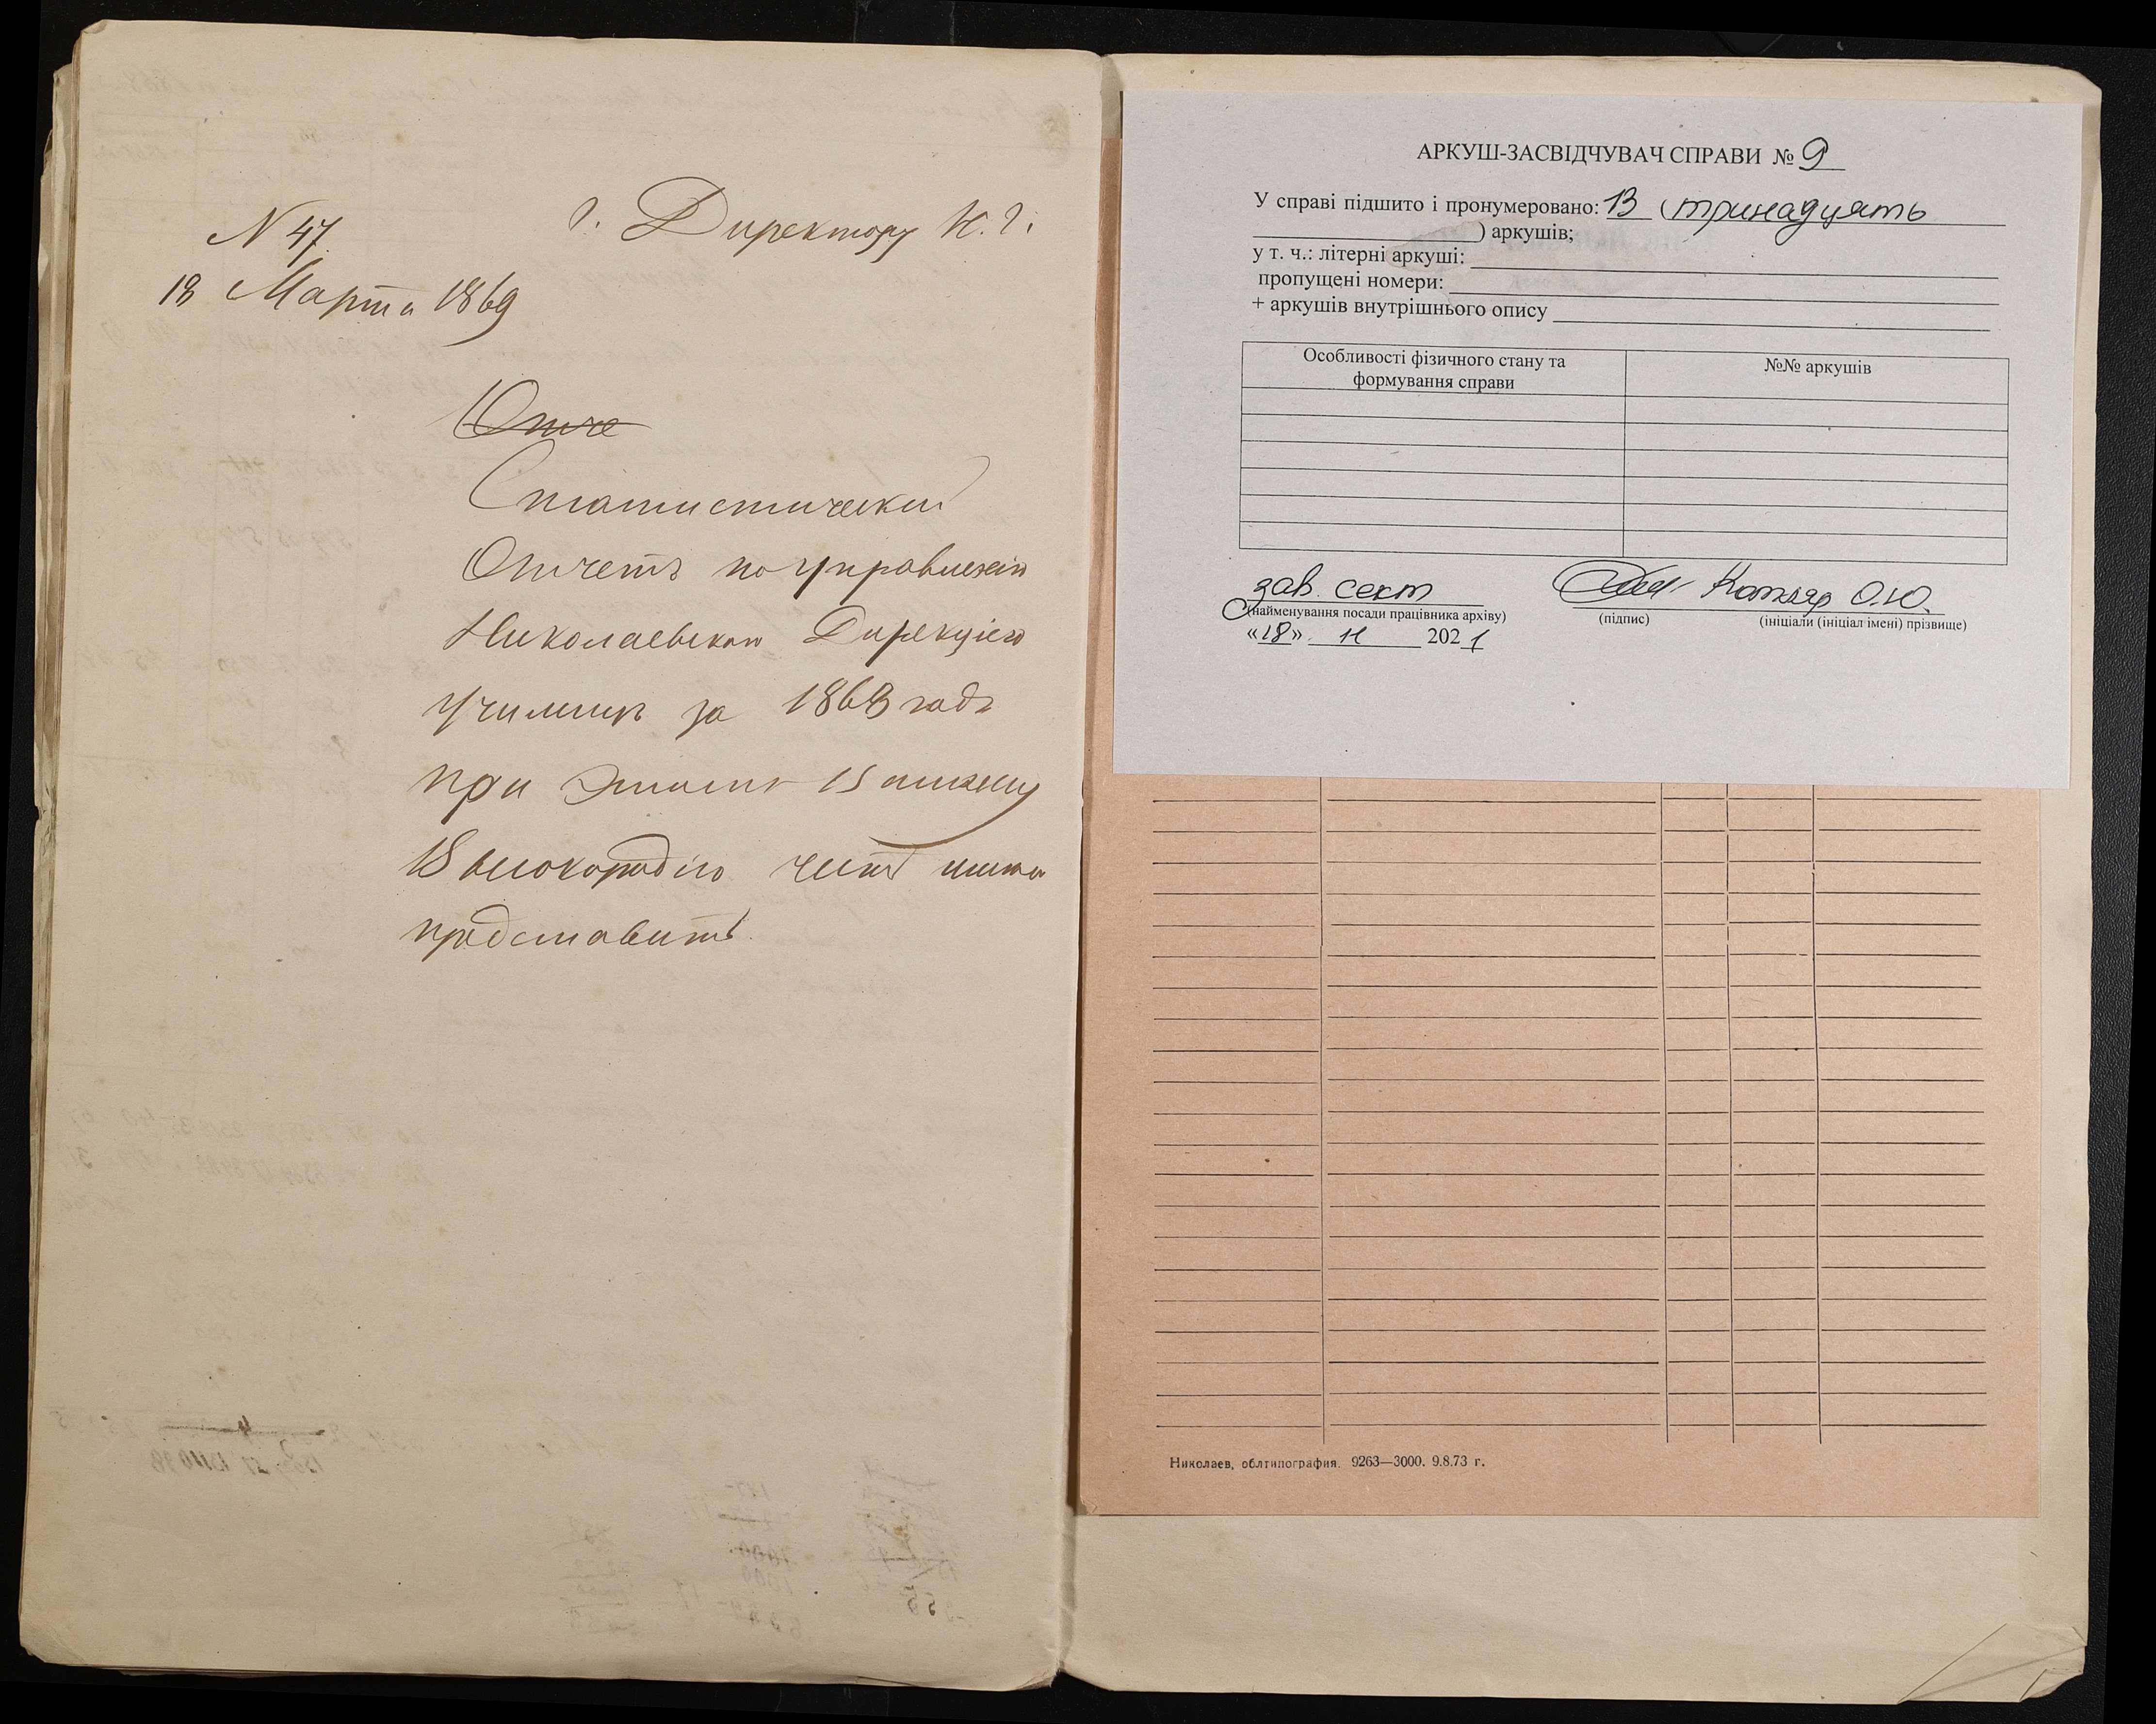 N 47
18 Марта 1869
г. Директору Н. Г.
Отче
Статистический
Отчетъ по управленію
Николаевскою Дирекціею
училищъ за 1868 годъ
при этомъ Вашему
Высокородію честь имѣю
представить.
АРКУШ-ЗАСВІДЧУВАЧ СПРАВИ № 9
У справі підшито і пронумеровано: 13 (тринадцять
) аркушів;
у т. ч.: літерні аркуші:
пропущені номери:
+ аркушів внутрішнього опису
Особливості фізичного стану та
формування справи
№№ аркушів
зав. сект Котляр О.Ю.
(найменування посади працівника архіву) (підпис) (ініціали (ініціал імені) прізвище)
«18» 11 2021
Николаев, облтипография. 9263—3000. 9.8.73 г.